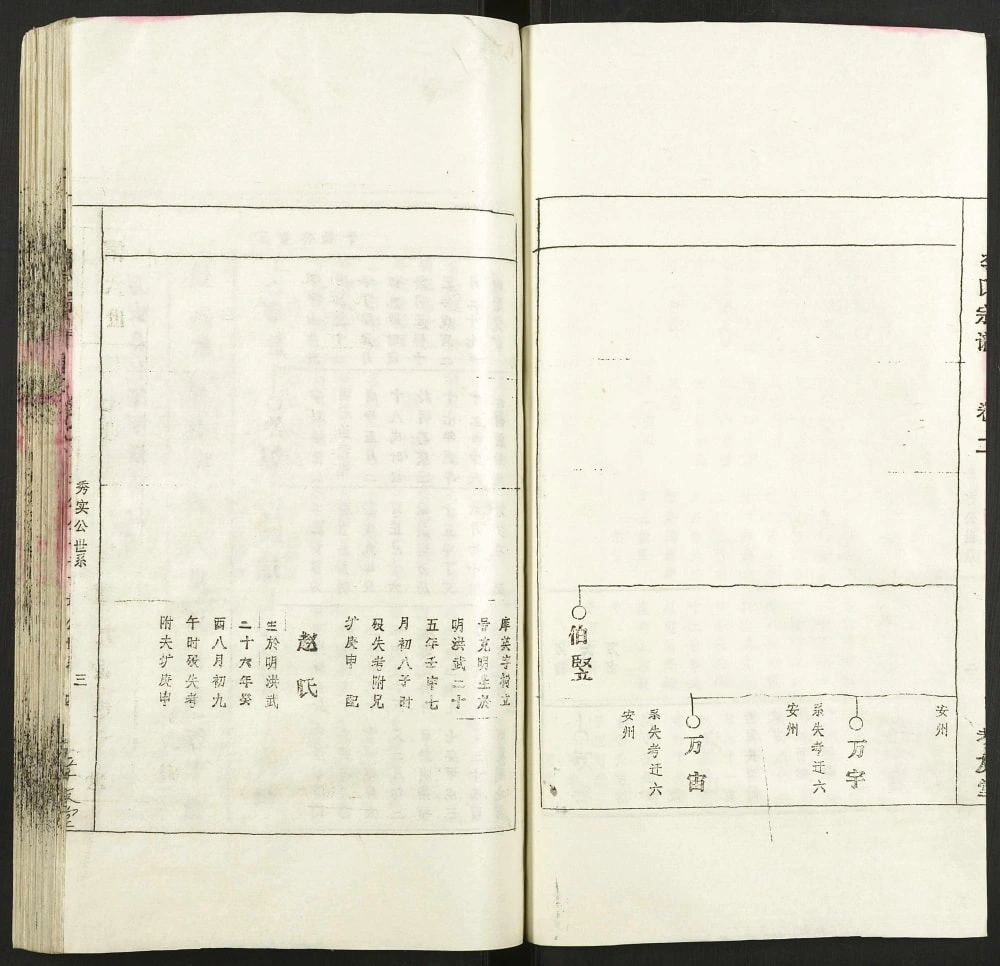 李氏宗谱 卷二
孝友堂
安州
万宇
系失考迁六
安州
万宙
系失考迁六
安州
伯竖
庠英字樹立
号克明生於
明洪武二十
五年壬申七
月初八子时
殁失考附兄
圹庚申 配
赵氏
生於明洪武
二十六年癸
酉八月初九
午时殁失考
附夫圹庚申
秀实公世系
三